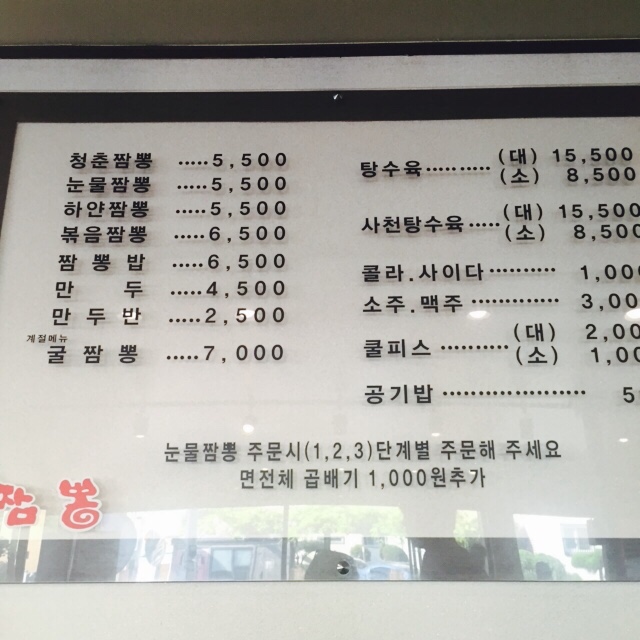 청춘짬뽕 .....5,500
눈물짬뽕 .....5,500
하얀짬뽕 .....5,500
볶음짬뽕 .....6,500
짬뽕밥 .....6,500
만두 .....4,500
만두반 .....2,500
계절메뉴
굴짬뽕 .....7,000
탕수육.......... (대) 15,500
(소) 8,500
사천탕수육..... (대) 15,500
(소) 8,500
콜라.사이다........... 1,000
소주.맥주.............. 3,00
쿨피스........... (대) 2,00
(소) 1,00
공기밥....................... 5
눈물짬뽕 주문시(1,2,3)단계별 주문해 주세요
면전체 곱배기 1,000원추가
짬뽕